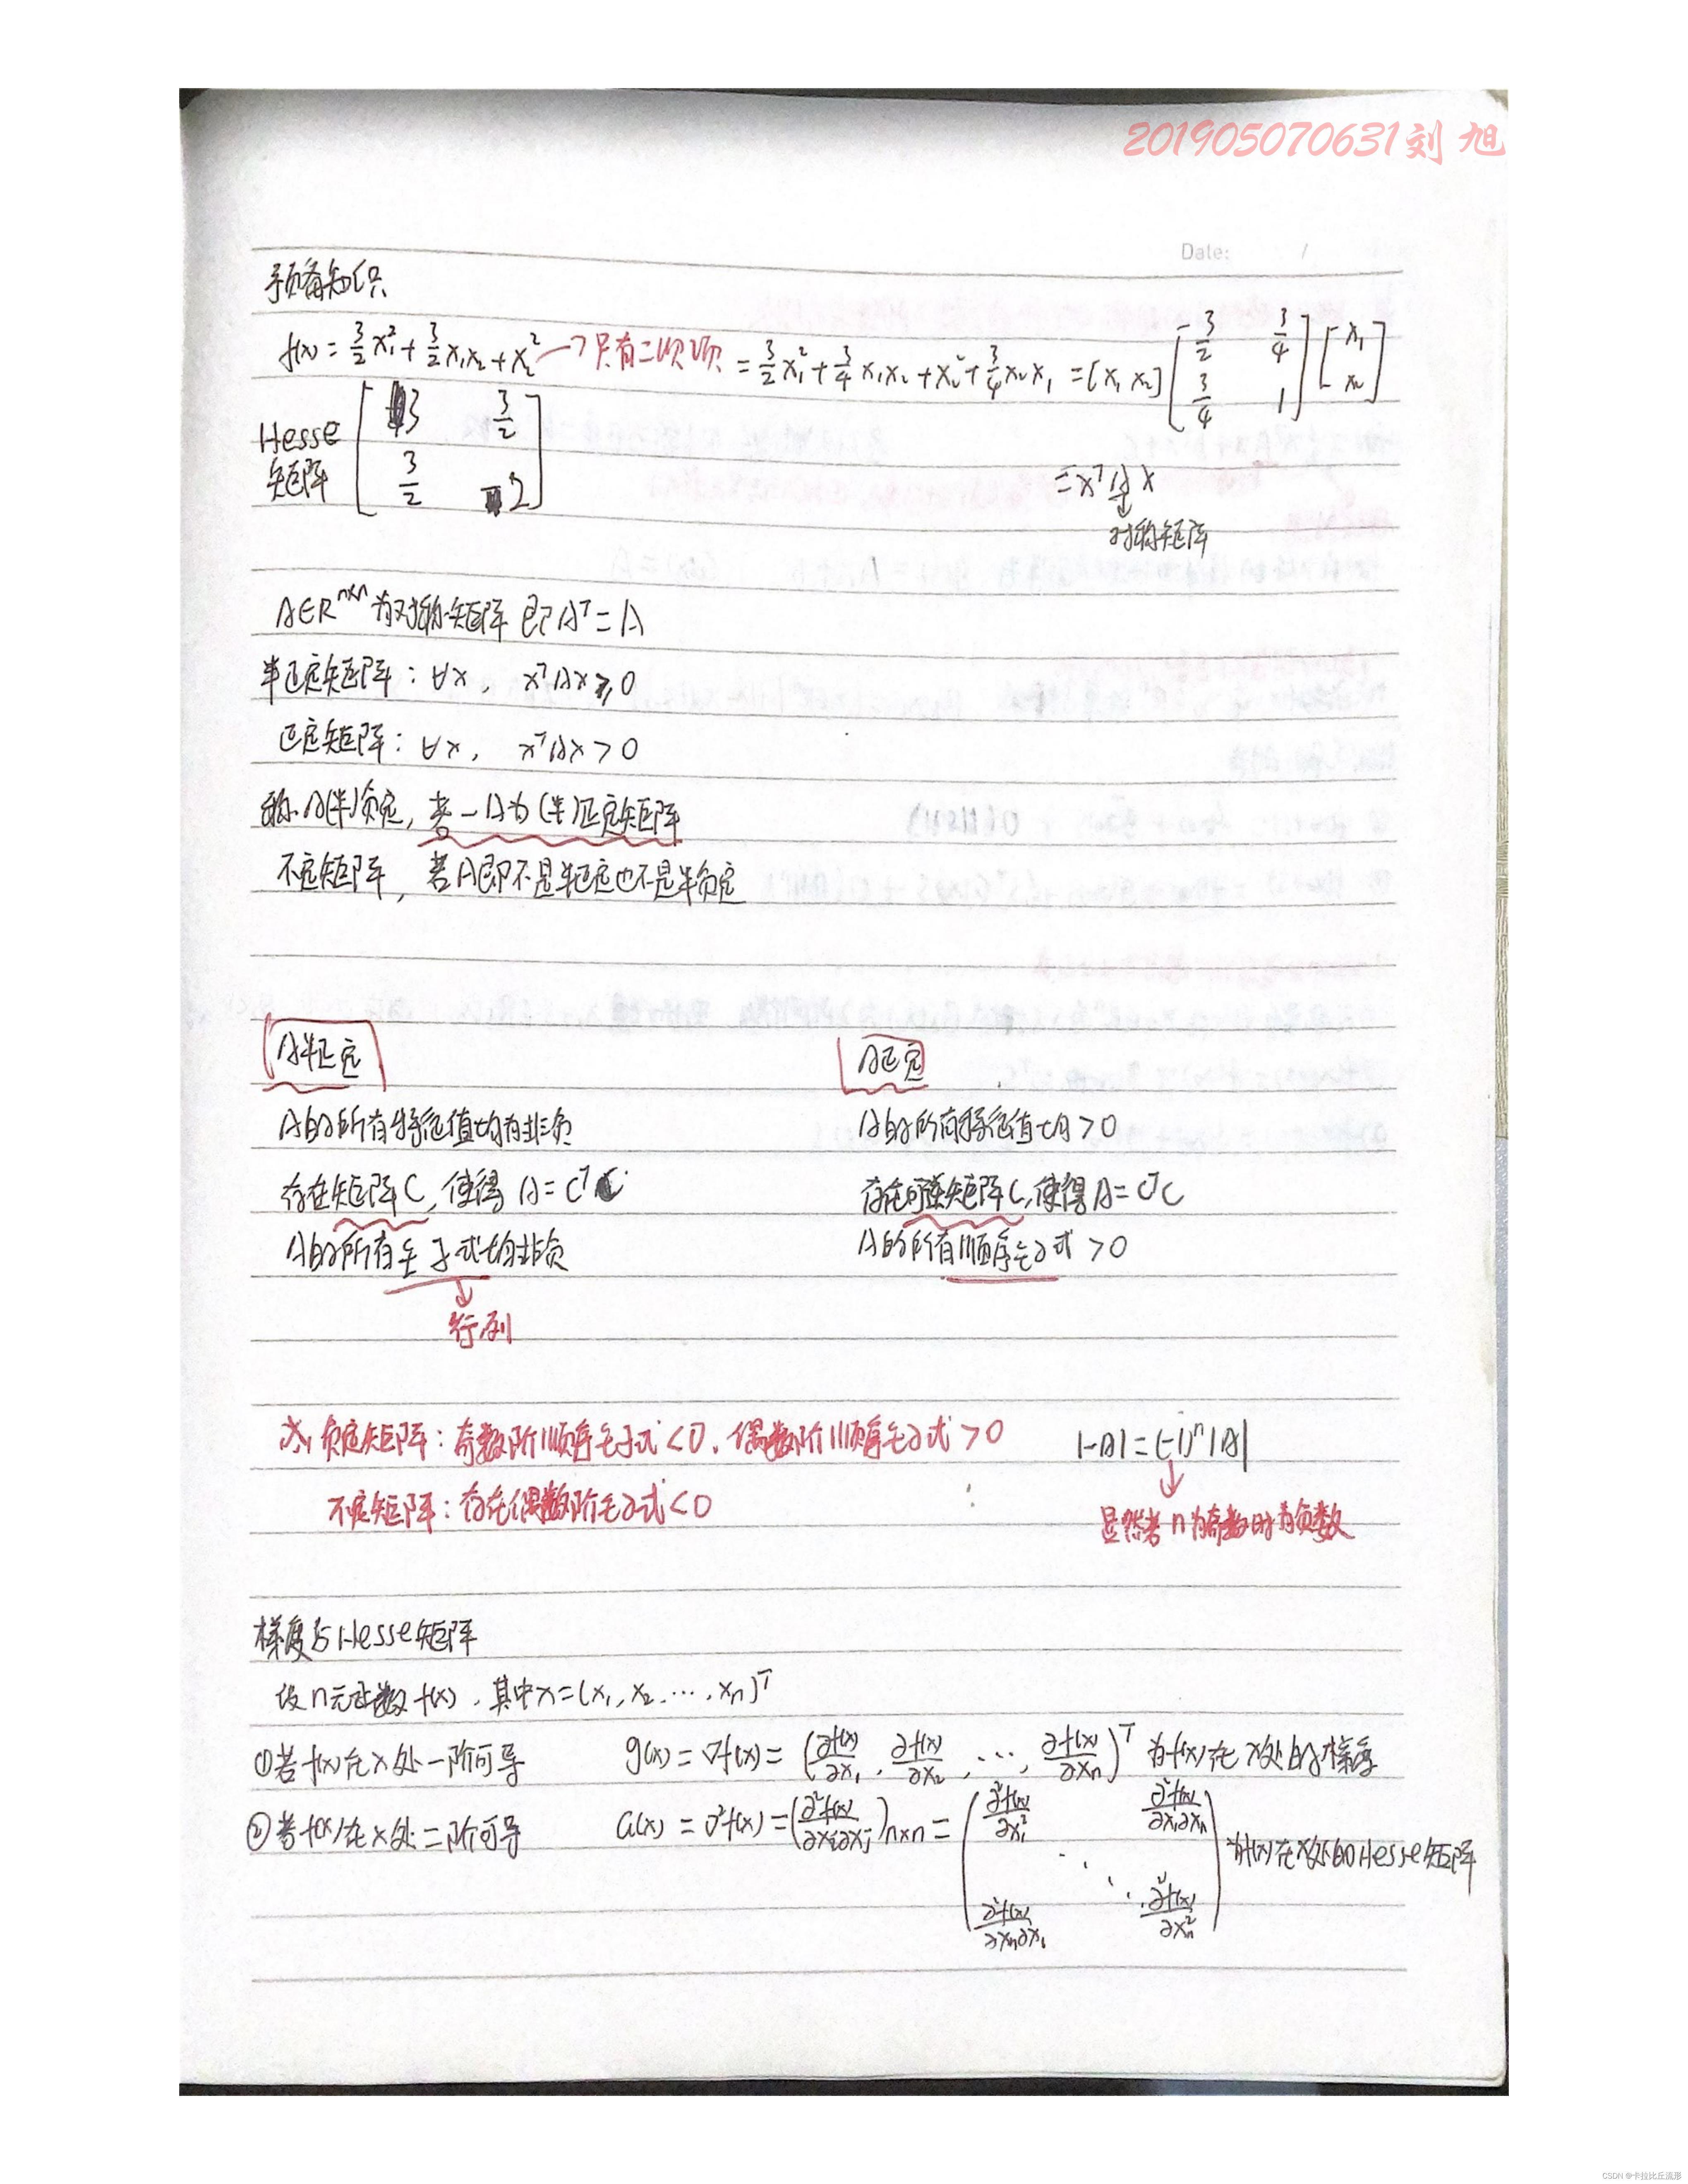 201905070631刘旭
Date: /
预备知识
f(x) = 3/2 x₁² + 3/2 x₁x₂ + x₂² → 只有二次项 = 3/2 x₁² + 3/4 x₁x₂ + x₂² + 3/4 x₂x₁ = [x₁ x₂] [3/2 3/4; 3/4 1] [x₁; x₂]
Hesse矩阵 [3 3/2; 3/2 2]
= xᵀAx
对称矩阵
A∈Rⁿˣⁿ为对称矩阵 即Aᵀ=A
半正定矩阵：∀x， xᵀAx≥0
正定矩阵：∀x， xᵀAx>0
称A(半)负定，若-A为(半)正定矩阵
不定矩阵，若A即不是半正定也不是半负定
A半正定
A正定
A的所有特征值均有非负
A的所有特征值均>0
存在矩阵C，使得 A=CᵀC
存在可逆矩阵C，使得A=CᵀC
A的所有主子式均非负
A的所有顺序主子式>0
行列
负定矩阵：奇数阶顺序主子式<0，偶数阶顺序主子式>0
|-A|=(-1)ⁿ|A|
不定矩阵：存在偶数阶主子式<0
显然当n为奇数时为负数
梯度与Hesse矩阵
设n元函数f(x)，其中x=(x₁,x₂,…,xₙ)ᵀ
①若f(x)在x处一阶可导 g(x)=∇f(x)=(∂f(x)/∂x₁, ∂f(x)/∂x₂, …, ∂f(x)/∂xₙ)ᵀ 为f(x)在x处的梯度
②若f(x)在x处二阶可导 G(x)=∇²f(x)=(∂²f(x)/∂xᵢ∂xⱼ)ₙₓₙ=(∂²f(x)/∂x₁² ∂²f(x)/∂x₁∂xₙ ⋱ ∂²f(x)/∂xₙ∂x₁ ∂²f(x)/∂xₙ²) 为f(x)在x处的Hesse矩阵
CSDN @卡拉比丘流形